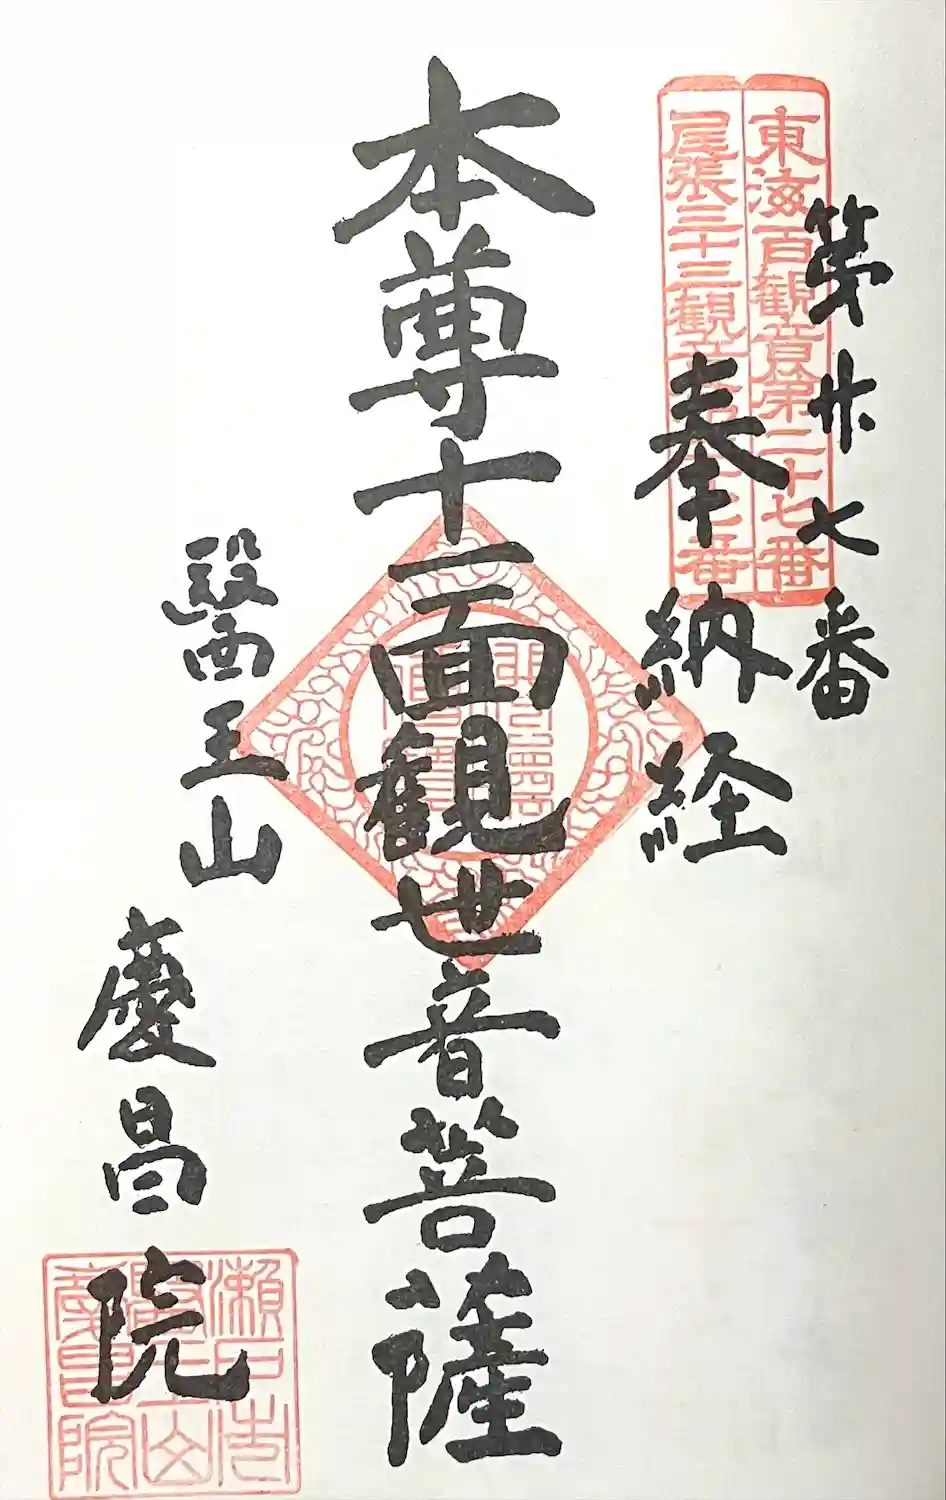 第廿七番
東海百観音第二十七番
尾張三十三観音第二十七番
奉納経
本尊十一面観世音菩薩
醫王山
慶昌院
瀬戸市
醫王山
慶昌院